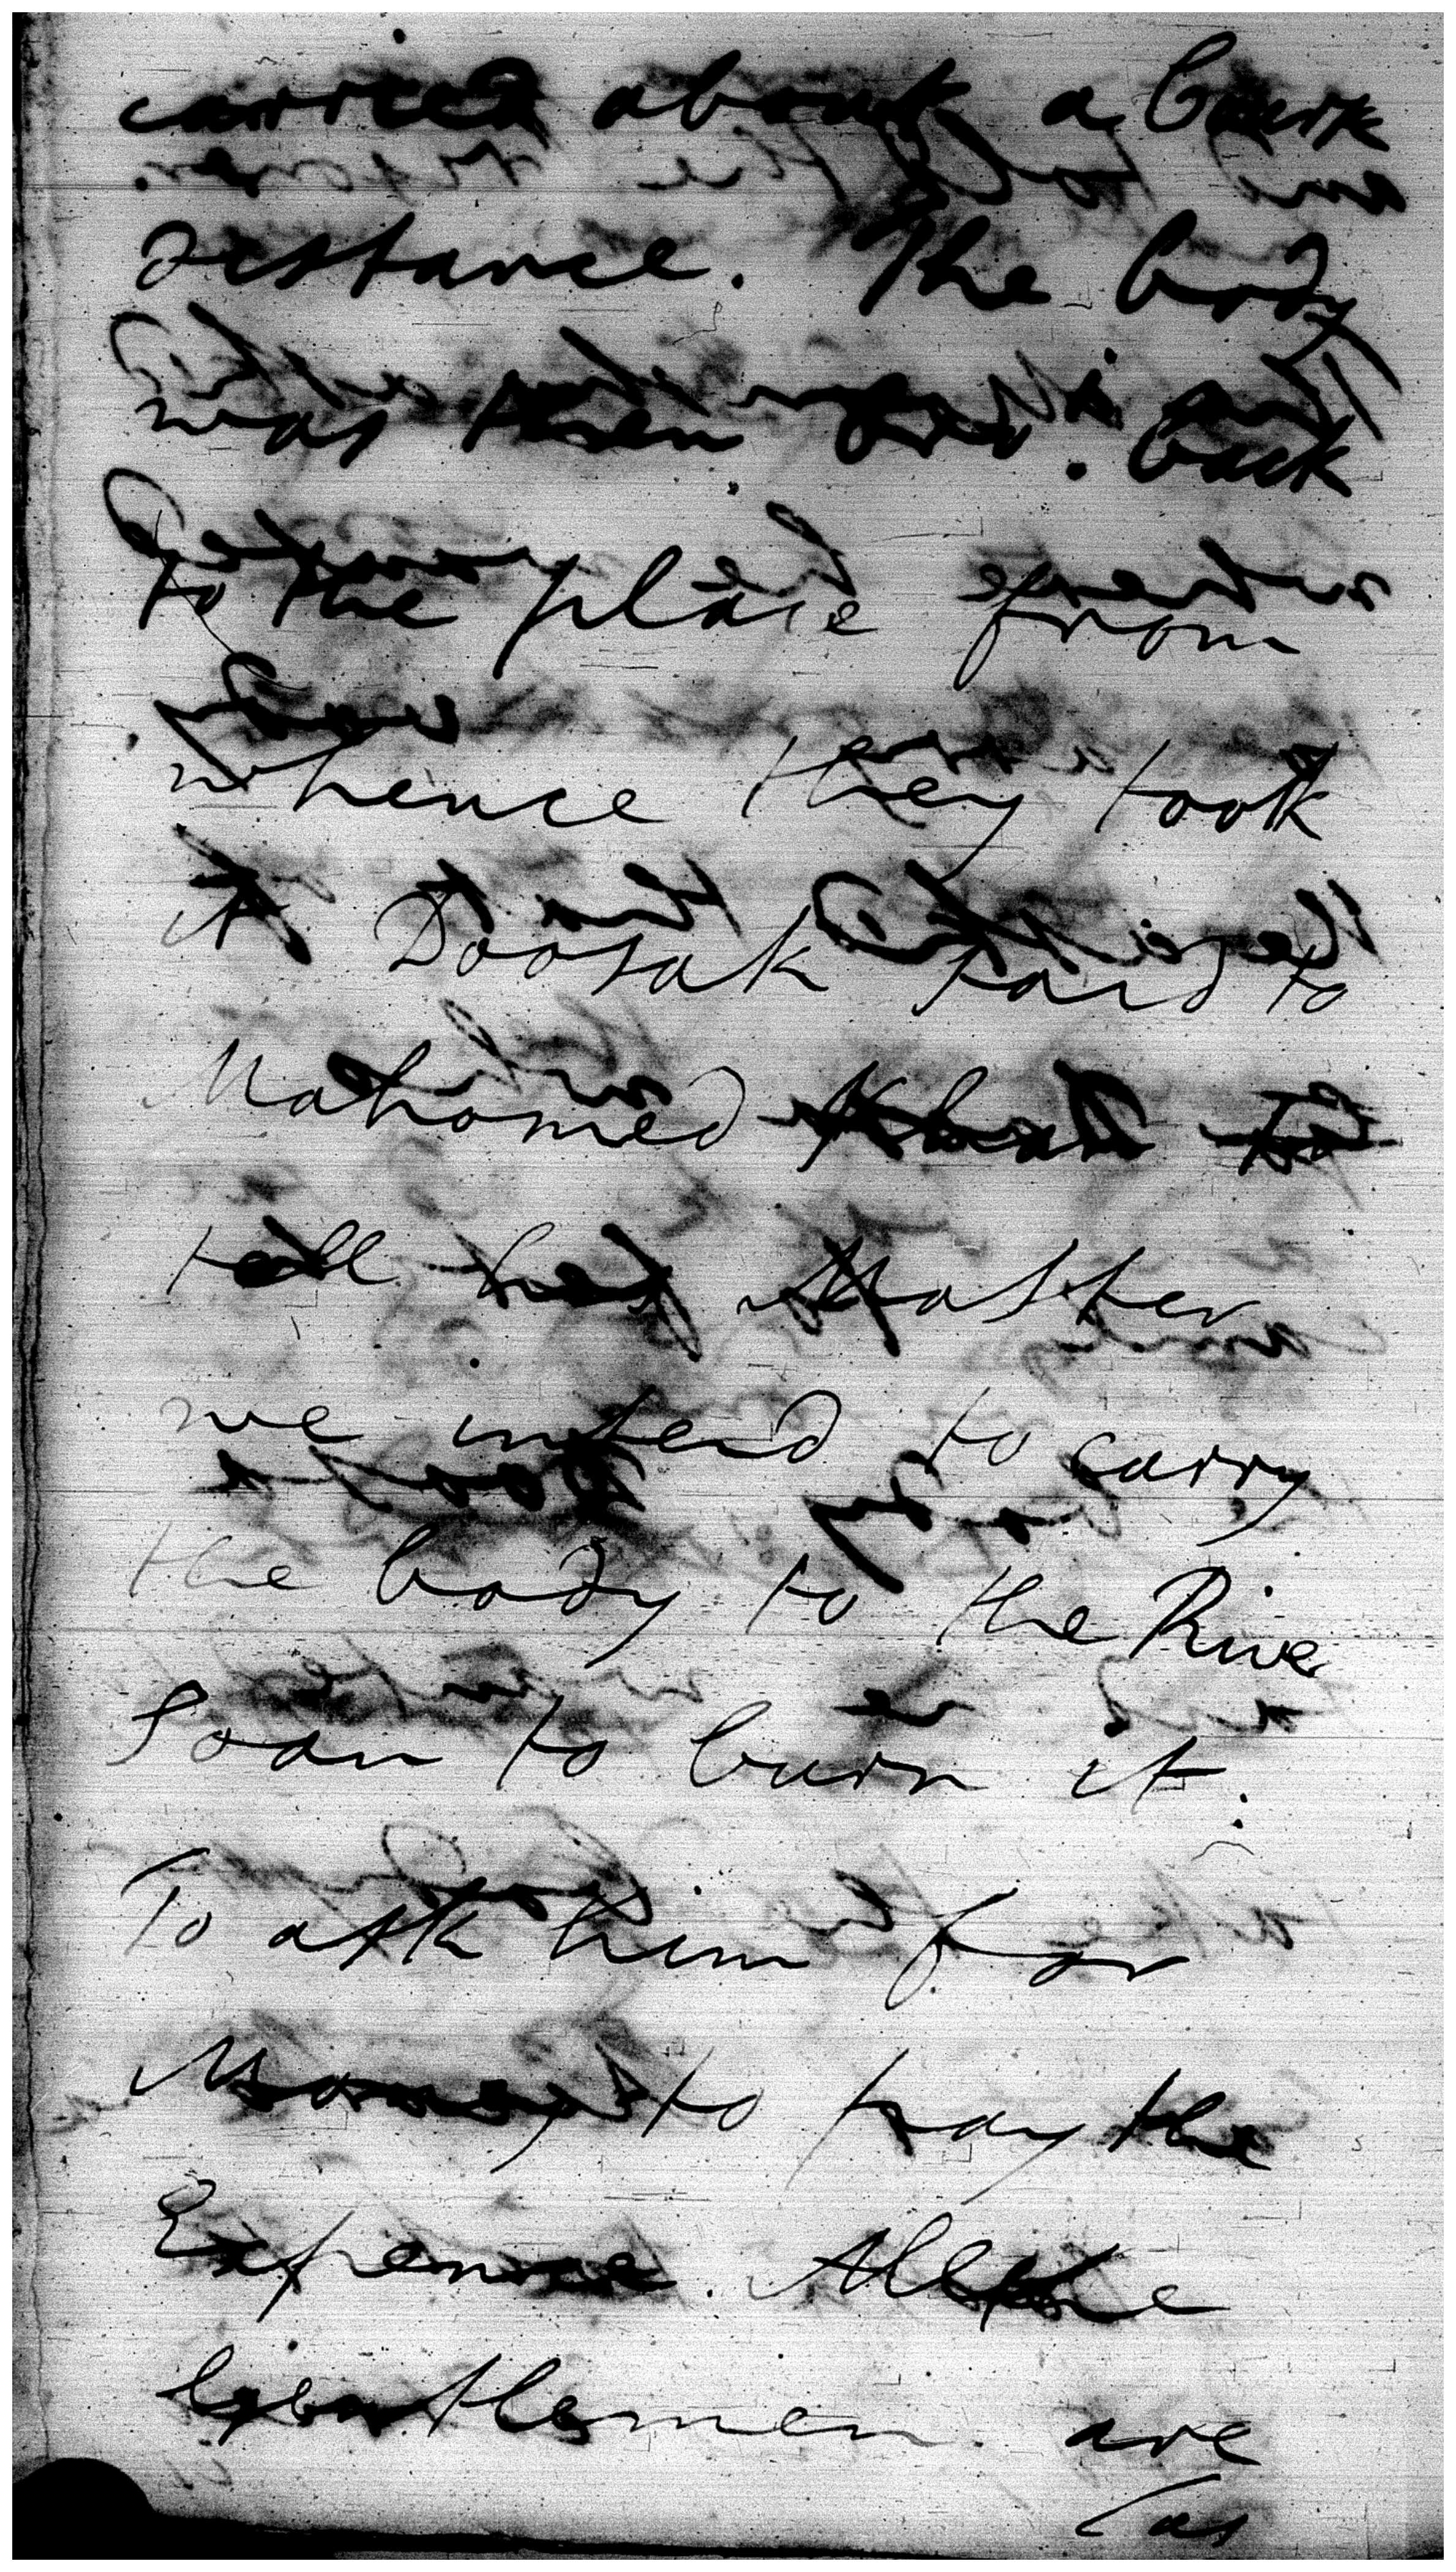 carried about a Courk
distance. The body
was then got back
to the place from
whence they took
it Doosak said to
Mahomed Khan to
tell his Master
we intend to carry
the body to the River
Soan to burn it.
To ask him for
Money to pay the
Expense. All the
Gentlemen are
(as